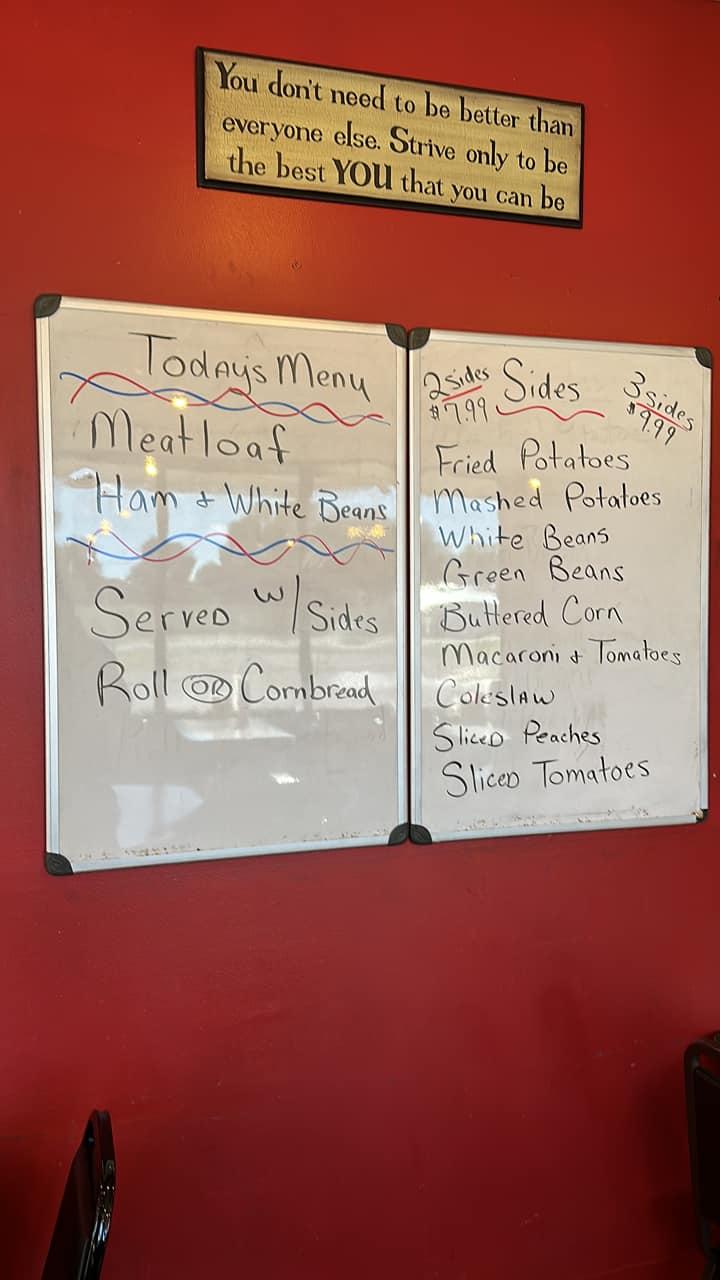 You don't need to be better than
everyone else. Strive only to be
the best YOU that you can be
Today's Menu
Meatloaf
Ham & White Beans
Served w/ Sides
Roll OR Cornbread
2 sides
$7.99
Sides
3 sides
$9.99
Fried Potatoes
Mashed Potatoes
White Beans
Green Beans
Buttered Corn
Macaroni & Tomatoes
Coleslaw
Sliced Peaches
Sliced Tomatoes